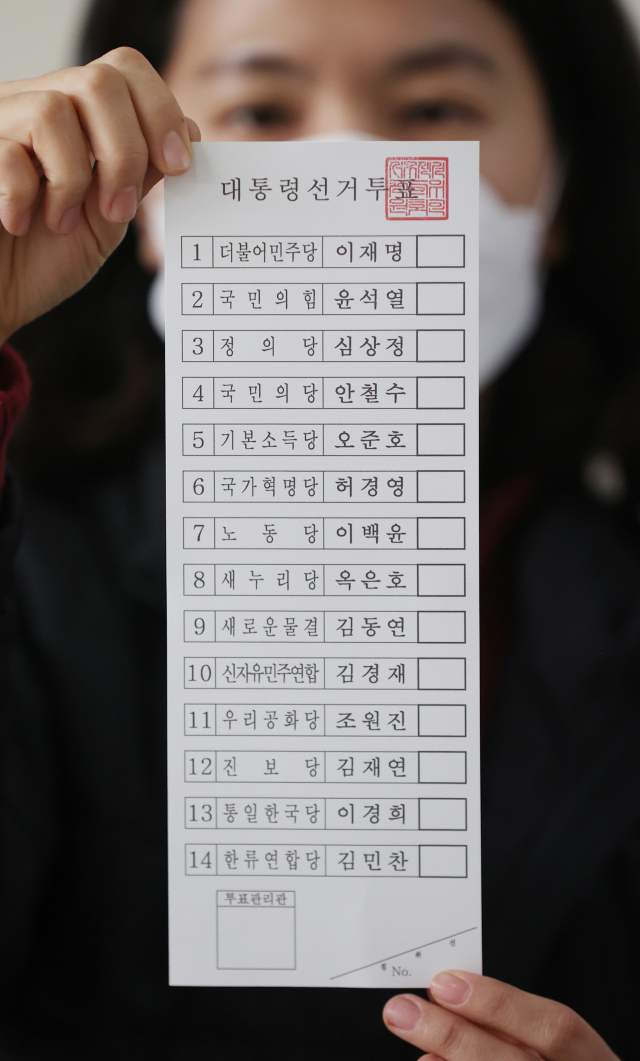 대통령선거투표
1 더불어민주당 이재명
2 국민의힘 윤석열
3 정의당 심상정
4 국민의당 안철수
5 기본소득당 오준호
6 국가혁명당 허경영
7 노동당 이백윤
8 새누리당 옥은호
9 새로운물결 김동연
10 신자유민주연합 김경재
11 우리공화당 조원진
12 진보당 김재연
13 통일한국당 이경희
14 한류연합당 김민찬
투표관리관
절 취 선
No.